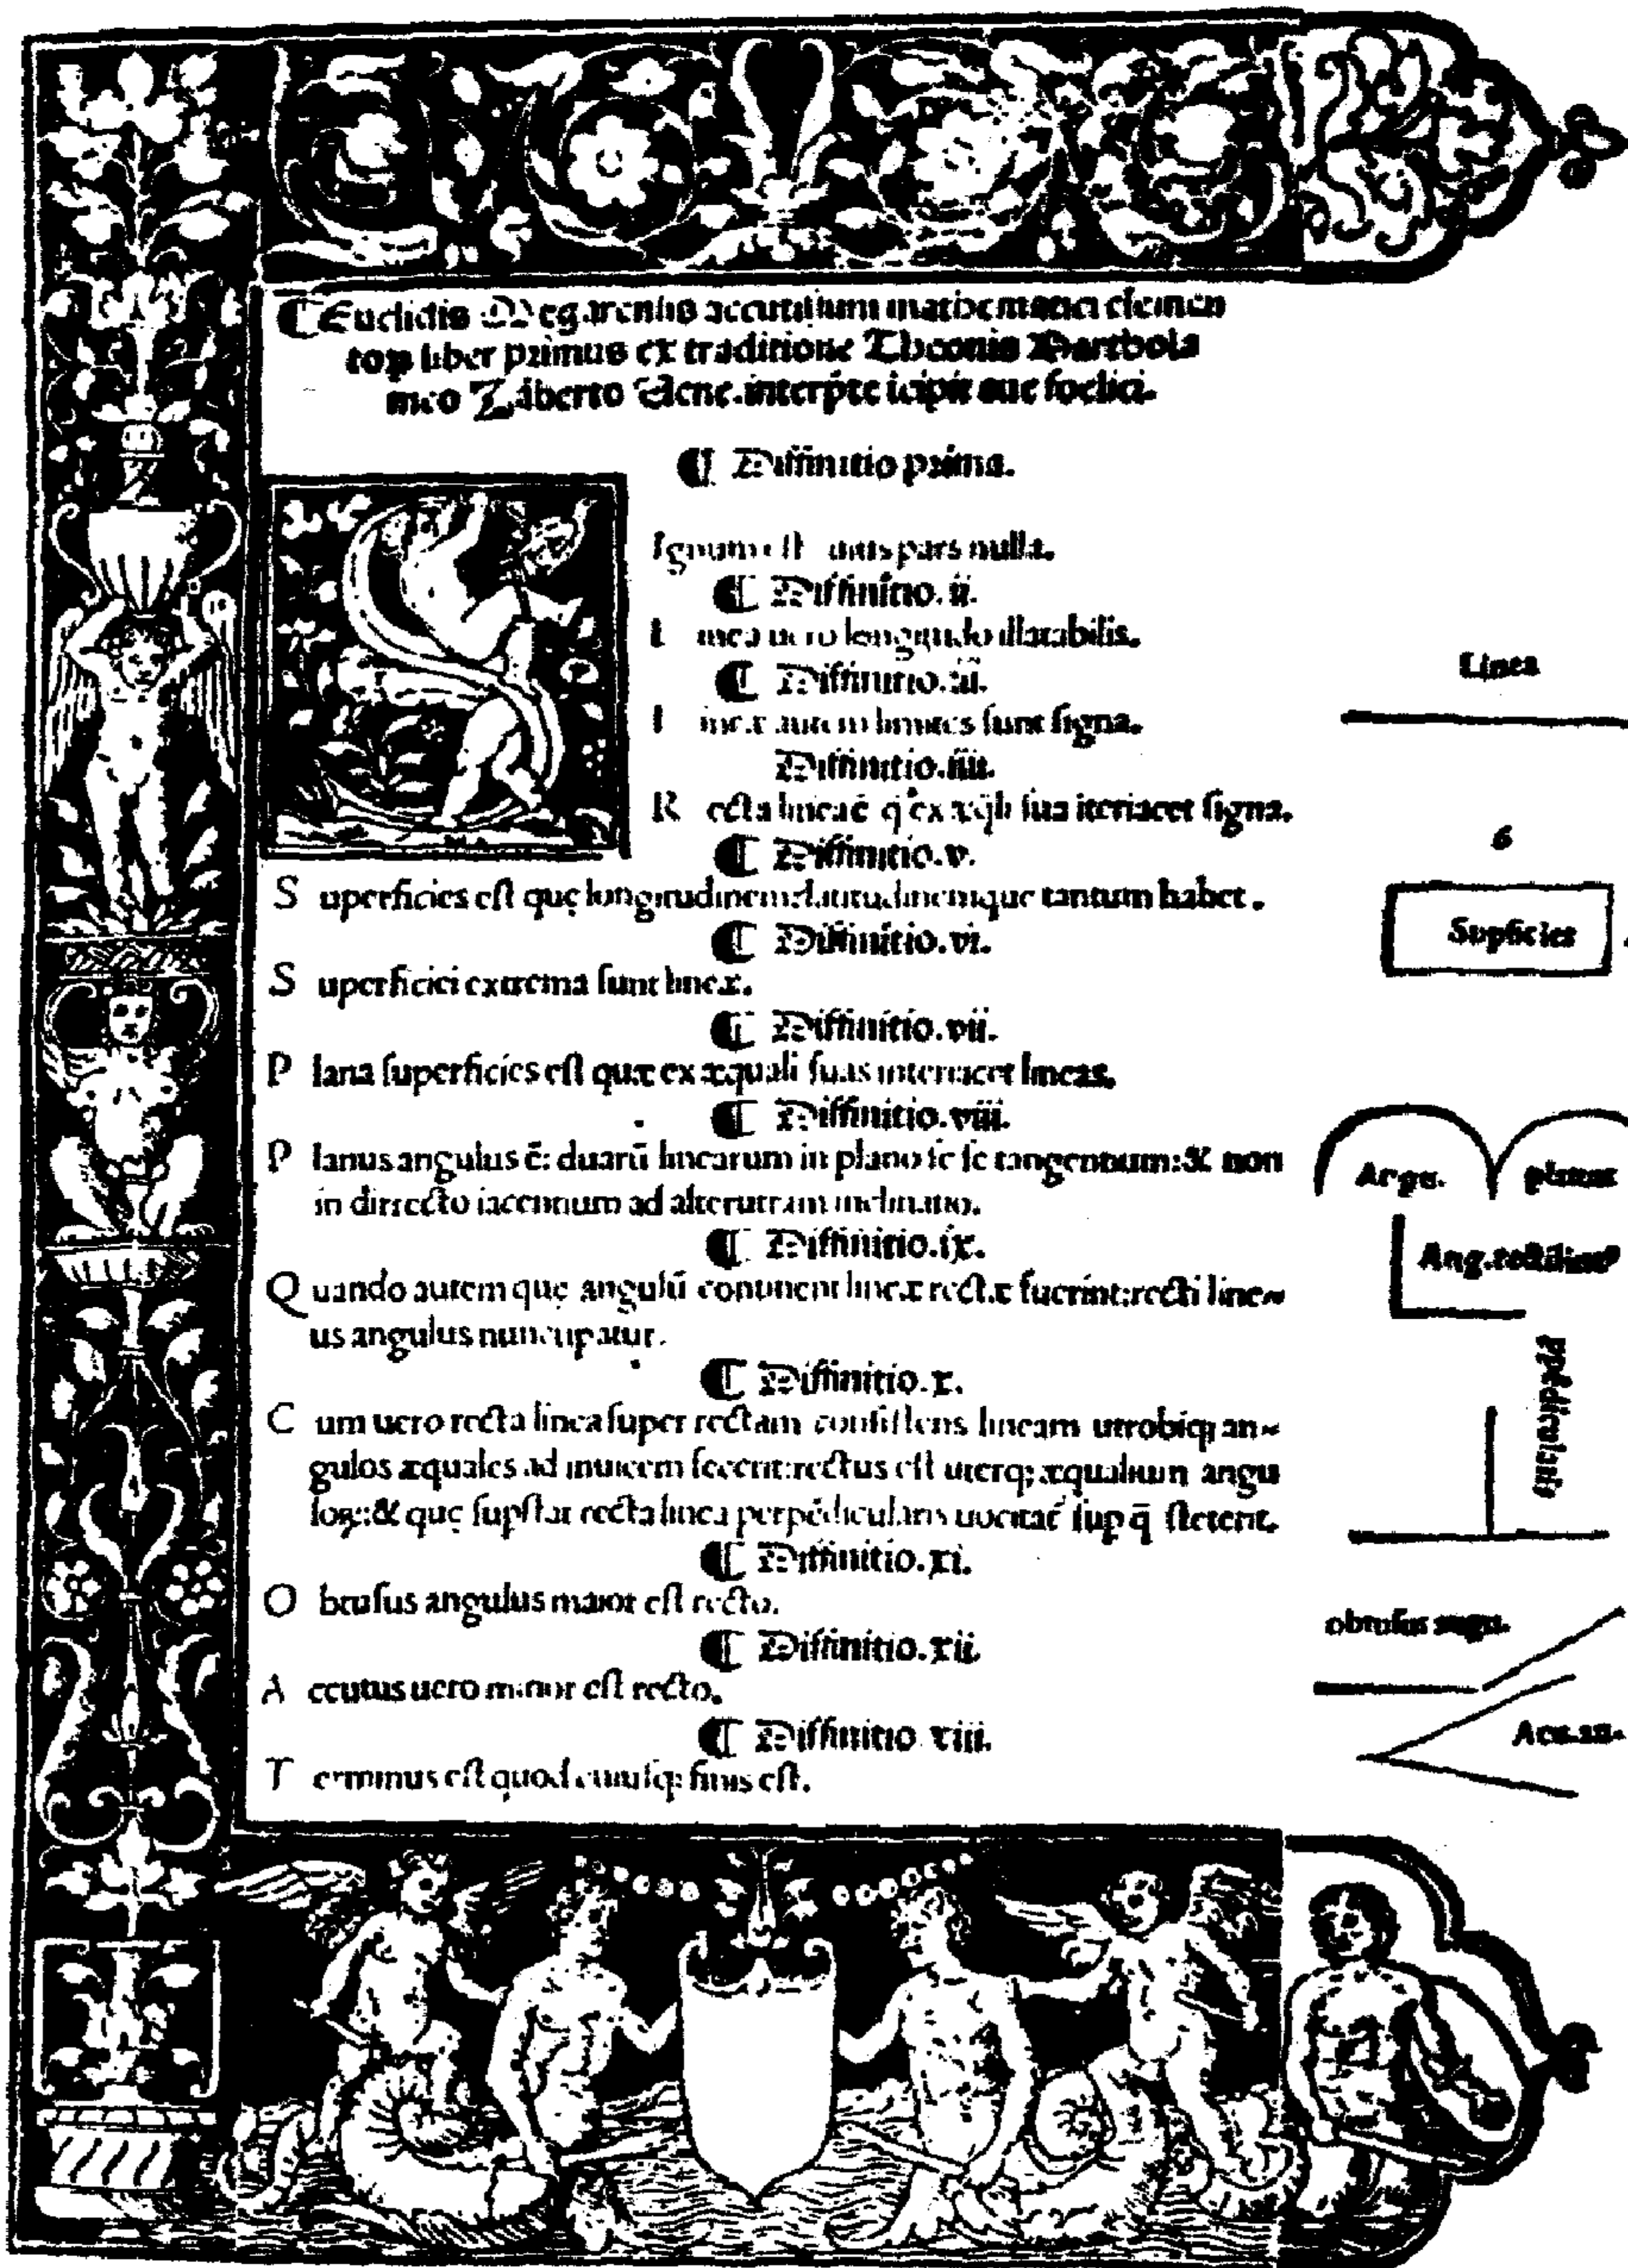 ¶Euclidis Megarensis accutissimi mathematici elemen
toꝝ liber primus ex traditione Theonis Barthola
meo Zāberto Uene. interp̄te icipit
¶ Diffinitio prima.
Signum est cuius pars nulla.
¶ Diffinitio.ii.
L inea uero longitudo illatabilis.
¶ Diffinitio.iii.
L ineæ autem limites sunt signa.
Diffinitio.iiii.
R ecta linea ē q̄ ex æq̄li sua iteriacet signa.
¶ Diffinitio.v.
S uperficies est quę longitudinem: latitudinemque tantum habet.
¶ Diffinitio.vi.
S uperficiei extrema sunt lineæ.
¶ Diffinitio.vii.
P lana superficies est quæ ex æquali suas interiacet lineas.
¶ Diffinitio.viii.
P lanus angulus ē: duarū linearum in plano se se tangentium: & non
in dirrecto iacentium ad alterutram inclinatio.
¶ Diffinitio.ix.
Q uando autem quę angulū continent lineæ rectæ fuerint: recti line-
us angulus nuncupatur.
¶ Diffinitio.x.
C um uero recta linea super rectam consistens lineam utrobiqꝫ an-
gulos æquales ad inuicem fecerit: rectus est uterqꝫ æqualium angu
loꝝ: & quę supstat recta linea perpēdicularis uocitat̄ sup q̄ steterit.
¶ Diffinitio.xi.
O btusus angulus maior est recto.
¶ Diffinitio.xii.
A ccutus uero minor est recto.
¶ Diffinitio xiii.
T erminus est quod cuiusqꝫ finis est.
Linea
6
Supficies
Angu. planus
Ang. rectiline⁹
ppēdicularis
obtusus angu.
Acu. an.